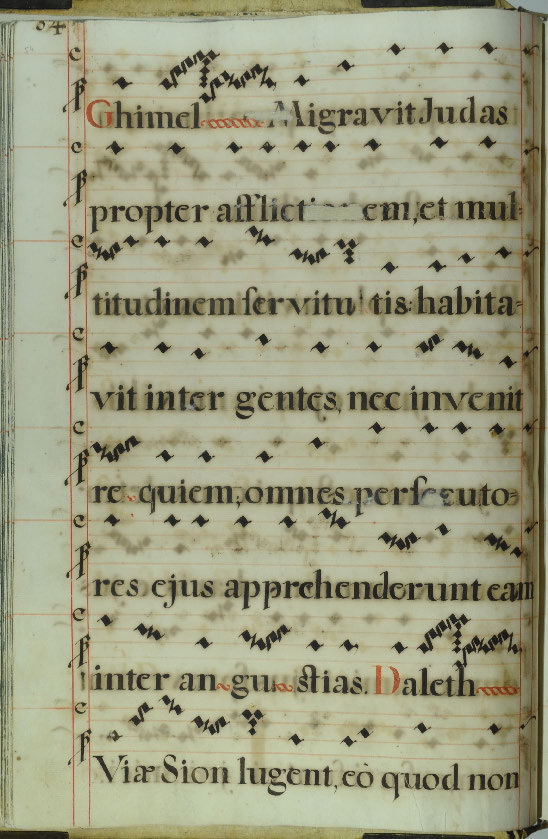 64
Ghimel Migravit Judas
propter afflict em, et mul=
titudinem servitu tis: habita=
vit inter gentes, nec invenit
re quiem; omnes persecuto=
res ejus apprehenderunt eam
inter an gu stias. Daleth
Viæ Sion lugent, eò quod non